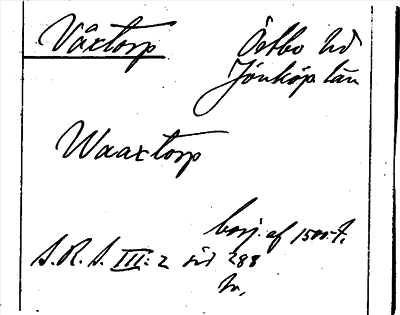 Växtorp Östbo hd
Jönköp. län
Waaxtorp
börj. af 1500-t.
S. R. S. III: 2 sid 288